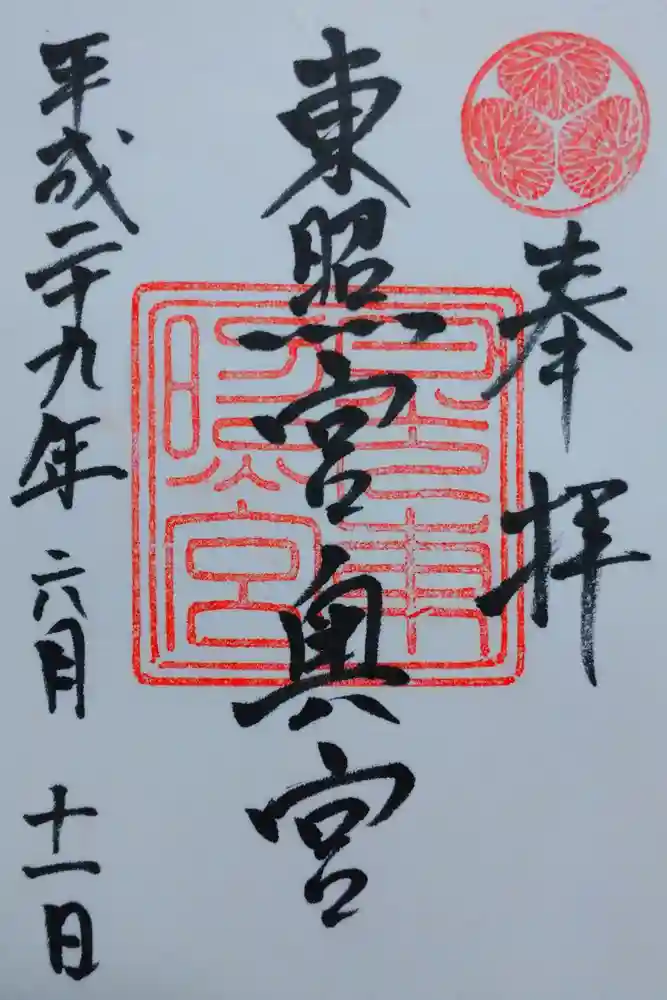 奉拝
東照宮奥宮
平成二十九年 六月 十一日
東
照宮